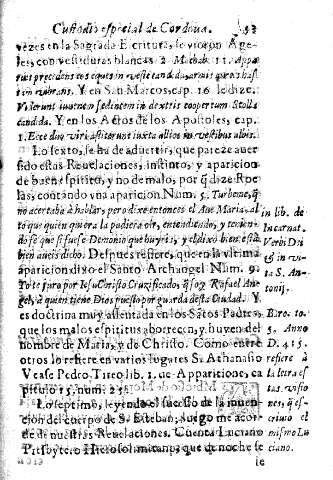 Custodio especial de Cordoua. 53
vezes en la Sagrada Escritura, se vieron Ange-
les, con vestiduras blancas. 2. Machab. 11. Appa-
ruit precedens eos eques in veste candida armis aureis hasta
in vibrans. Y en San Marcos, cap. 16. se dize.
Viderunt iuuenem sedentem in dextris coopertum Stolla
candida. Y en los Actos de los Apostoles, cap.
1. Ecce duo viri astiterunt iuxta illos in vestibus albis.
Lo sexto, se ha de aduertir, que pareze auer
sido estas Reuelaciones, instinto, y aparicion
de buen espiritu, y no de malo, por q̃ dize Roe-
las, contando vna aparicion Num. 5. Turbeme, q̃
no acertaba à hablar, pero dixe entonces el Aue Maria, al
to que quien quiera la pudiera oir, entendiendo, y tenien-
do fè que si fuese Demonio que huyria, y el dixo bien està
bien aueis dicho. Despues refiere, que en la vltima
aparicion dixo el Santo Archangel Num. 9.
Yo te juro por Iesu Christo Cruzificado, q̃ soy Rafael An-
gel, à quien tiene Dios puesto por guarda desta Ciudad. Y
es doctrina muy assentada en los Sãtos Padres,
que los malos espiritus aborrecen, y huyen del
nombre de Maria, y de Christo. Como entre
otros lo refiere en varios lugares S. Athanasio
Vease Pedro Tireo lib. 1. de Apparitione, ca
pitulo 15. num. 25.
Lo septimo, leyendo el sucesso de la inuen-
cion del cuerpo de S. Esteban, luego me acor-
de de nuestras Reuelaciones. Cuenta Luciano
Presbytero Hierosolimitano, que de noche se
ie
in lib. de
Incarnat.
Verbi Dei
& in vi-
ta S. An-
tonij.
Baro. to.
5. Anno
D. 415.
refiere à
la letra es
tas visio-
nes, q̃ es-
criuio el
mismo Lu
ciano.